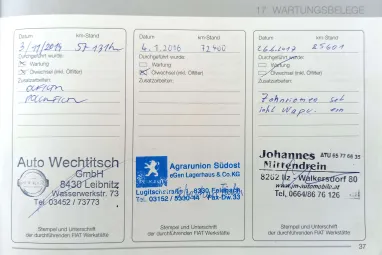 17 WARTUNGSBELEGE
Datum km-Stand
3/11/2015
Durchgeführt wurde:
Wartung
Ölwechsel (inkl. Ölfilter)
Zusatzarbeiten:
Auto Wechtitsch
GmbH
8430 Leibnitz
Wasserwerkstr. 73
Tel. 03452 / 73773
Stempel und Unterschrift
der durchführenden FIAT Werkstätte
Datum km-Stand
4.3.2016 72400
Durchgeführt wurde:
Wartung
Ölwechsel (inkl. Ölfilter)
Zusatzarbeiten:
Agrarunion Südost
eGen Lagerhaus & Co.KG
8330 Feldbach
Stempel und Unterschrift
der durchführenden FIAT Werkstätte
Datum km-Stand
85601
Durchgeführt wurde:
Wartung
Ölwechsel (inkl. Ölfilter)
Zusatzarbeiten:
Zahnriemen Set
inkl Wapu.
Johannes ATU 65 77 66 35
Mittendrein
8262 Ilz - Walkersdorf 80
www.jm-automobile.at
Tel. 0664/86 76 126
Stempel und Unterschrift
der durchführenden FIAT Werkstätte
37